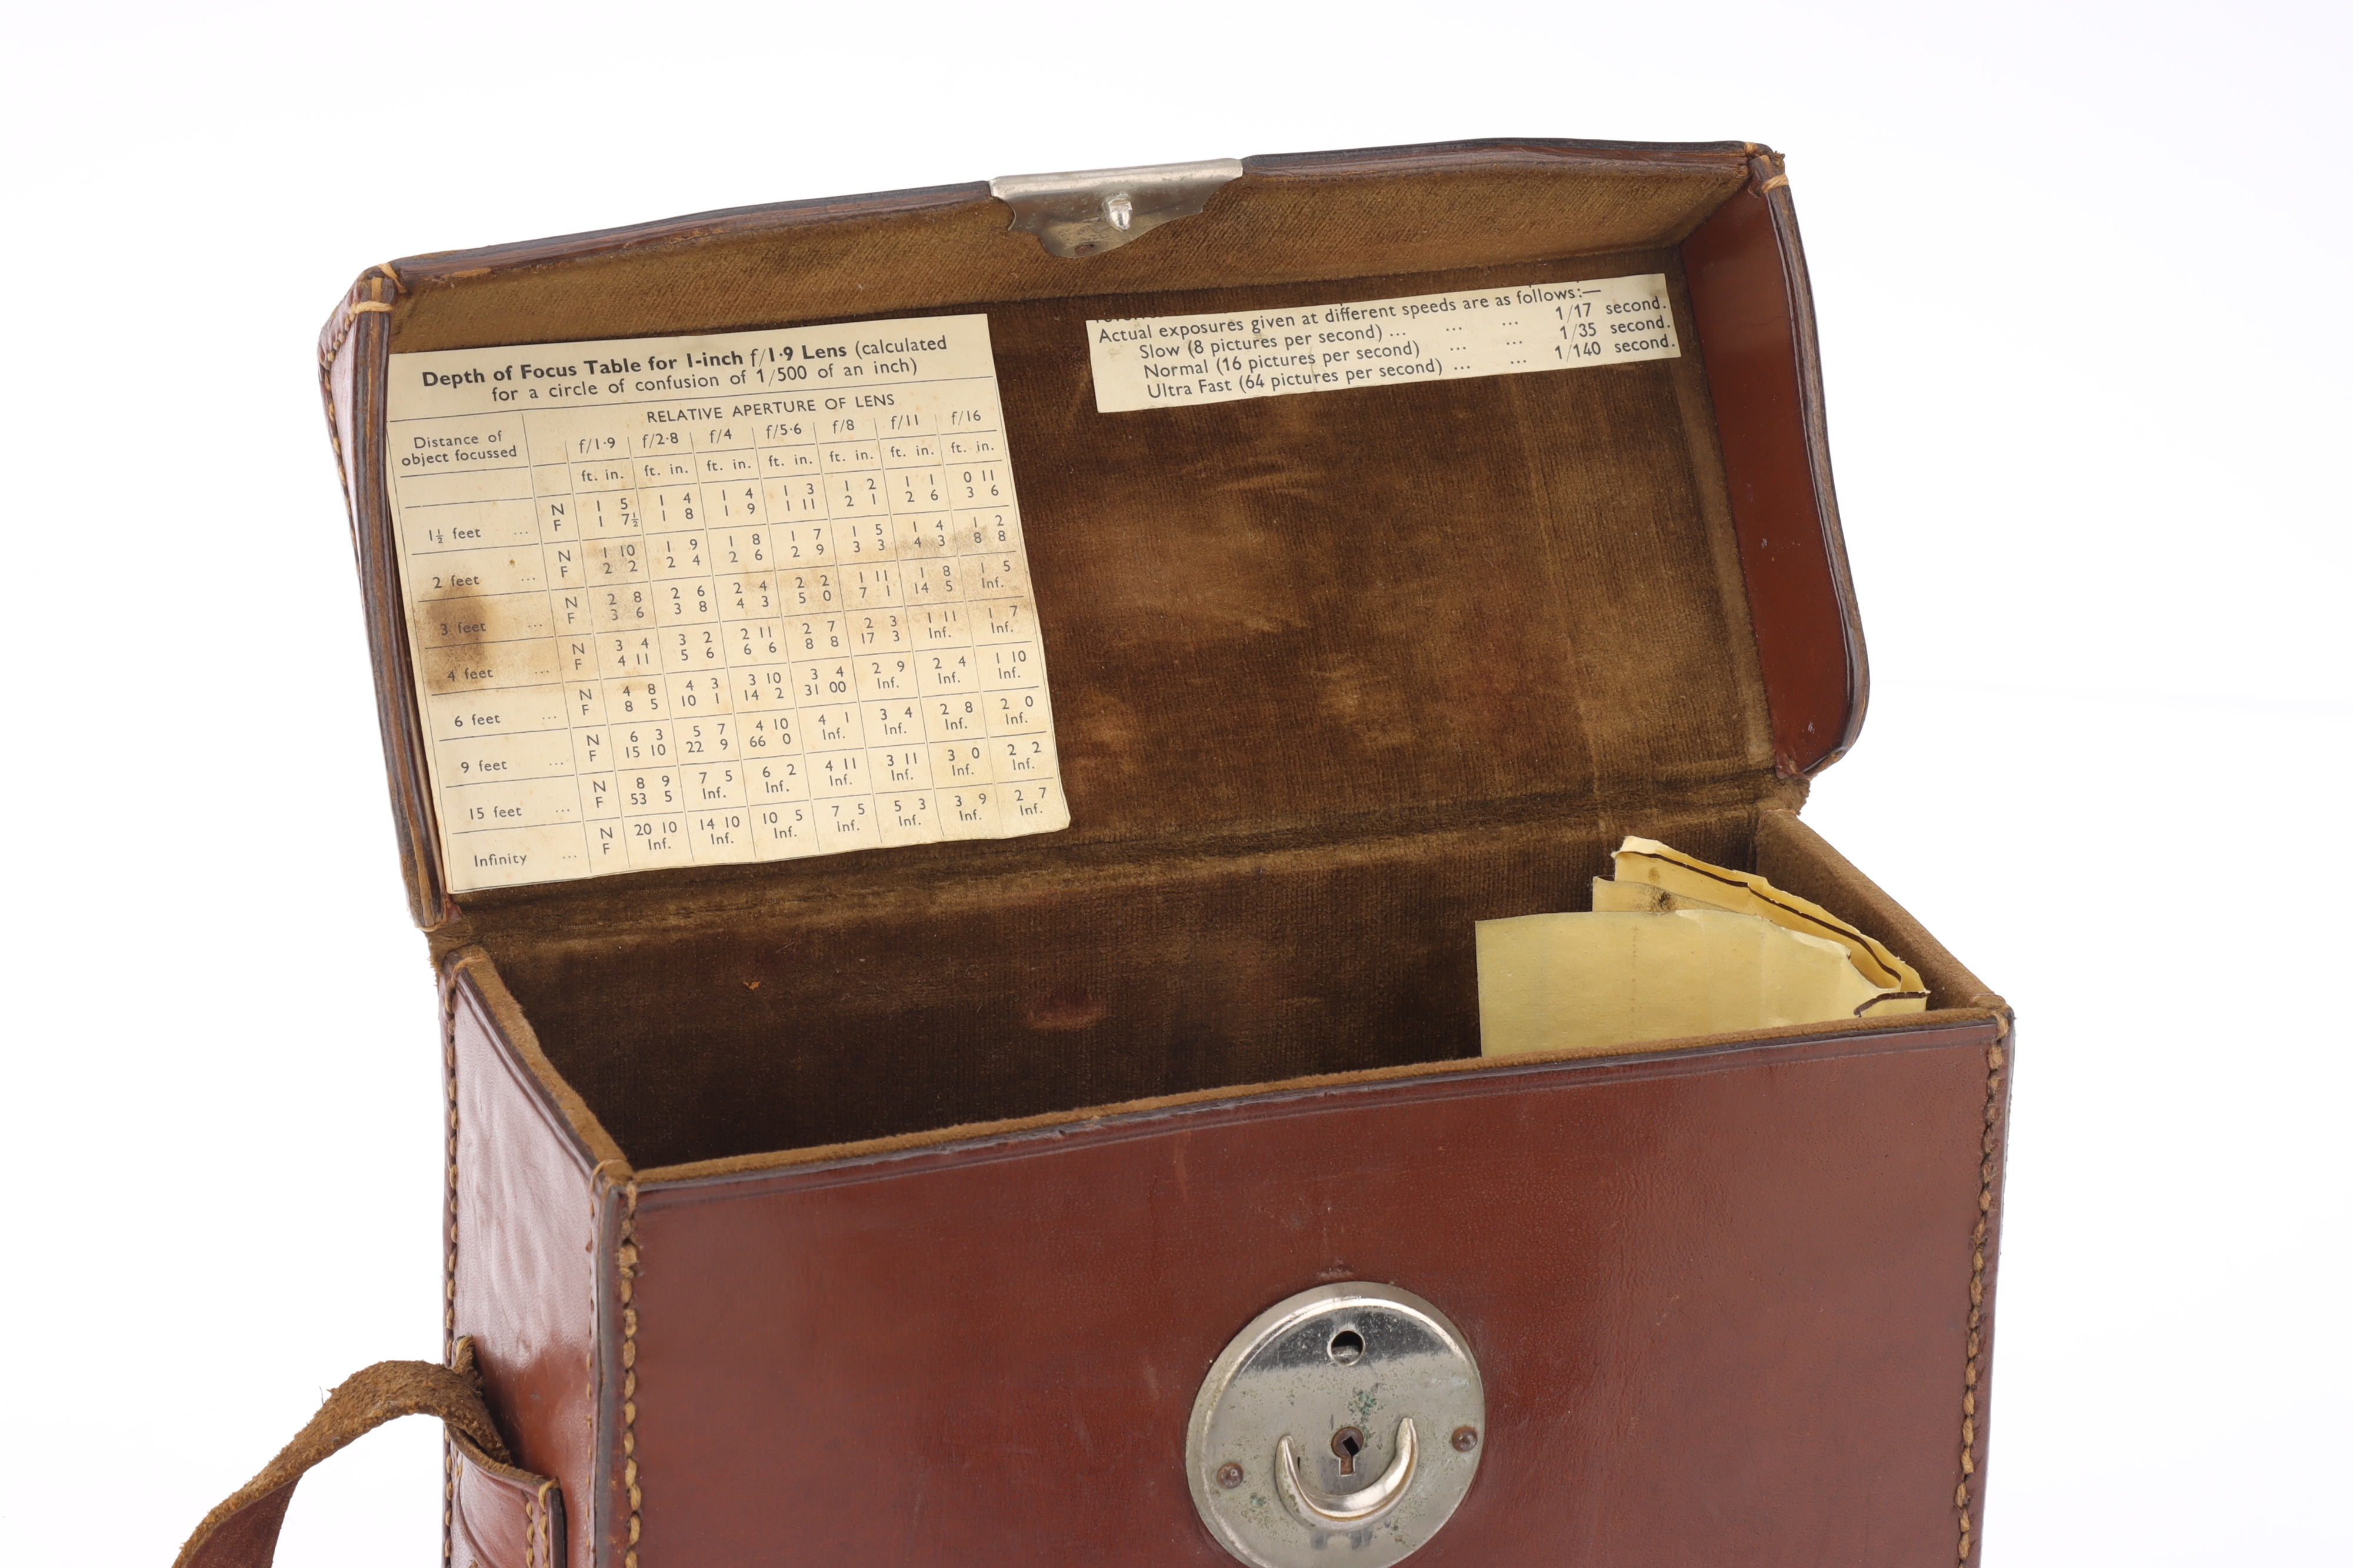 Depth of Focus Table for 1-inch f/1·9 Lens (calculated
for a circle of confusion of 1/500 of an inch)
Distance of
object focussed
RELATIVE APERTURE OF LENS
f/1·9 f/2·8 f/4 f/5·6 f/8 f/11 f/16
ft. in. ft. in. ft. in. ft. in. ft. in. ft. in. ft. in.
1½ feet ... N 1 5 1 4 1 4 1 3 1 2 1 1 0 11
F 1 7½ 1 8 1 9 1 11 2 1 2 6 3 6
2 feet ... N 1 10 1 9 1 8 1 7 1 5 1 4 1 2
F 2 2 2 4 2 6 2 9 3 3 4 3 8 8
3 feet ... N 2 8 2 6 2 4 2 2 1 11 1 8 1 5
F 3 6 3 8 4 3 5 0 7 1 14 5 Inf.
4 feet ... N 3 4 3 2 2 11 2 7 2 3 1 11 1 7
F 4 11 5 6 6 6 8 8 17 3 Inf. Inf.
6 feet ... N 4 8 4 3 3 10 3 4 2 9 2 4 1 10
F 8 5 10 1 14 2 31 00 Inf. Inf. Inf.
9 feet ... N 6 3 5 7 4 10 4 1 3 4 2 8 2 0
F 15 10 22 9 66 0 Inf. Inf. Inf. Inf.
15 feet ... N 8 9 7 5 6 2 4 11 3 11 3 0 2 2
F 53 5 Inf. Inf. Inf. Inf. Inf. Inf.
Infinity ... N 20 10 14 10 10 5 7 5 5 3 3 9 2 7
F Inf. Inf. Inf. Inf. Inf. Inf. Inf.
Actual exposures given at different speeds are as follows:—
Slow (8 pictures per second) ... ... ... 1/17 second.
Normal (16 pictures per second) ... ... 1/35 second.
Ultra Fast (64 pictures per second) ... ... 1/140 second.